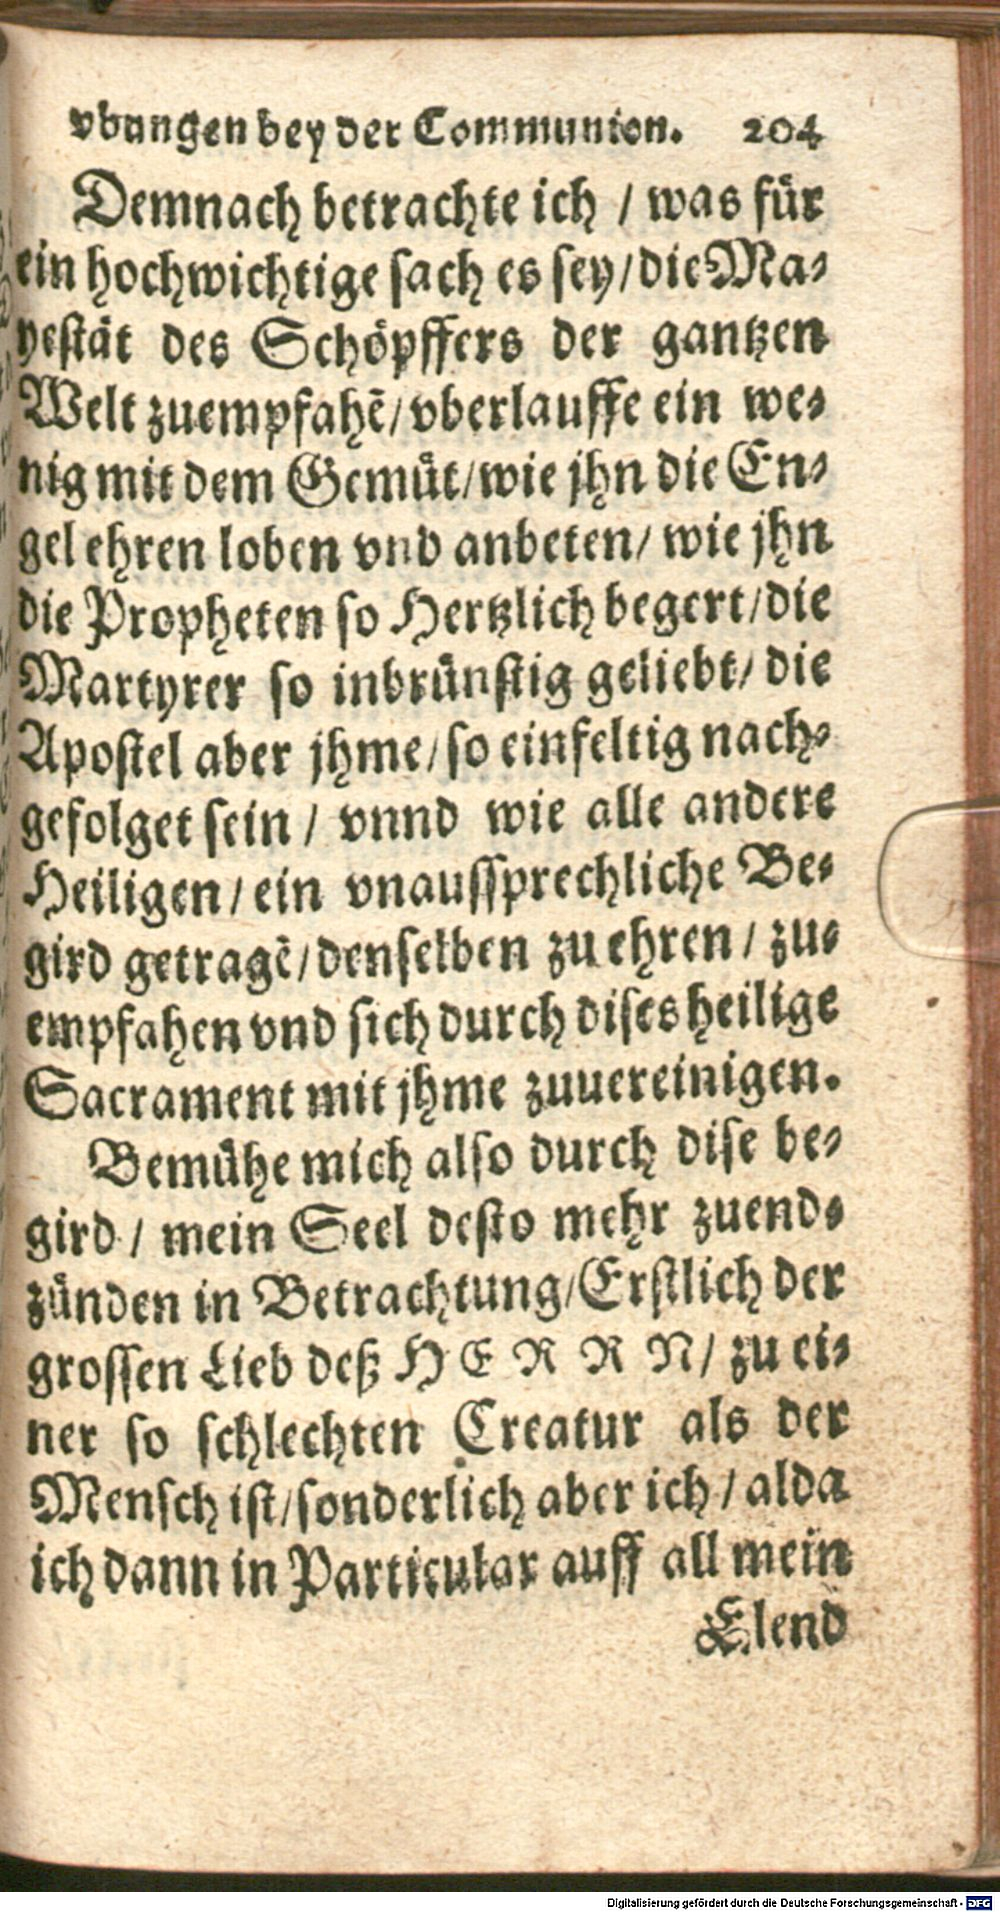 vbungen bey der Communion. 204
Demnach betrachte ich / was für
ein hochwichtige sach es sey / die Ma-
yestät des Schöpffers der gantzen
Welt zuempfahẽ / vberlauffe ein we-
nig mit dem Gemüt / wie jhn die En-
gel ehren loben vnd anbeten / wie jhn
die Propheten so Hertzlich begert / die
Martyrer so inbrünstig geliebt / die
Apostel aber jhme / so einfeltig nach-
gefolget sein / vnnd wie alle andere
Heiligen / ein vnaussprechliche Be-
gird getragẽ / denselben zu ehren / zu-
empfahen vnd sich durch dises heilige
Sacrament mit jhme zuuereinigen.
Bemühe mich also durch dise be-
gird / mein Seel desto mehr zuend-
zünden in Betrachtung / Erstlich der
grossen Lieb deß HERRN / zu ei-
ner so schlechten Creatur als der
Mensch ist / sonderlich aber ich / alda
ich dann in Particular auff all mein
Elend
Digitalisierung gefördert durch die Deutsche Forschungsgemeinschaft - DFG